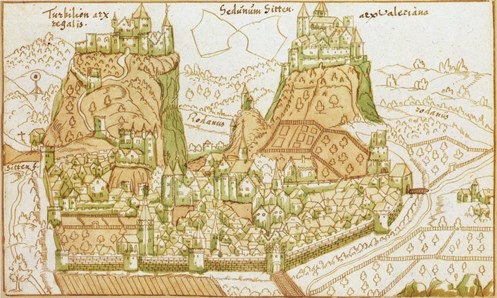 Turbilión arx
regalis.
Sedúnúm Sitten.
arx Valeriana
Rodanus
rodanus
Sitten